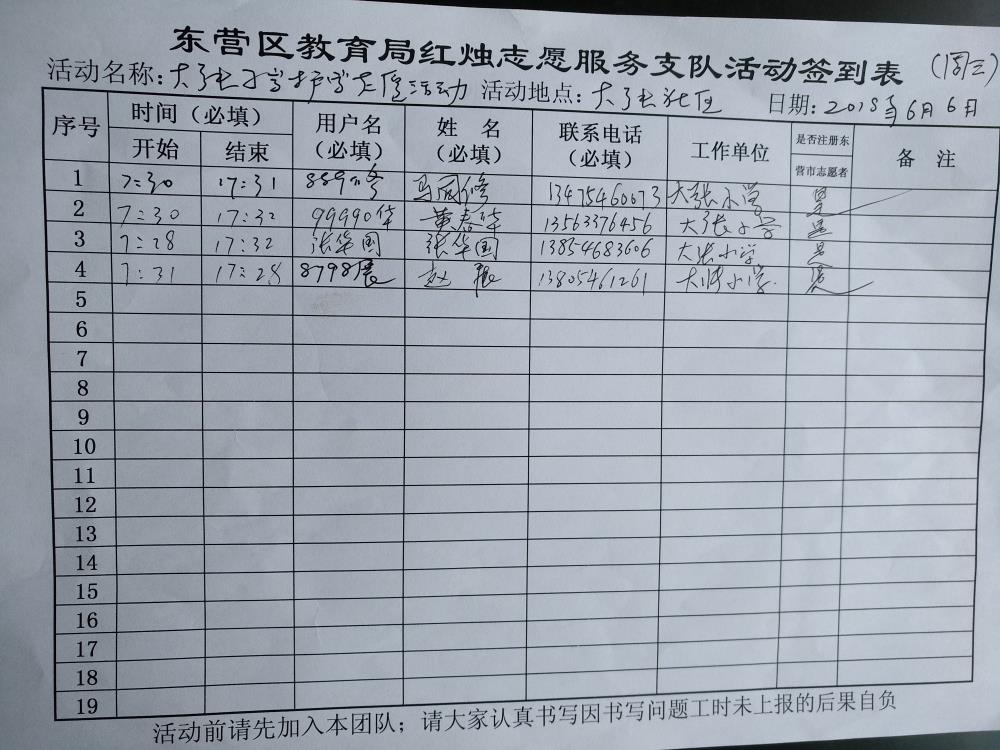 东营区教育局红烛志愿服务支队活动签到表 (周三)
活动名称:大张小学护学志愿活动 活动地点:大张社区 日期:2018年6月6日
序号 时间(必填) 用户名(必填) 姓名(必填) 联系电话(必填) 工作单位 是否注册东营市志愿者 备注
开始 结束
1 7:30 17:31 889 修 马 修 13475460673 大张小学 是
2 7:30 17:32 99990华 黄春华 13563376456 大张小学 是
3 7:28 17:32 张华国 张华国 13854683606 大张小学 是
4 7:31 17:28 8798展 赵展 13805461261 大张小学 是
5
6
7
8
9
10
11
12
13
14
15
16
17
18
19
活动前请先加入本团队;请大家认真书写因书写问题工时未上报的后果自负